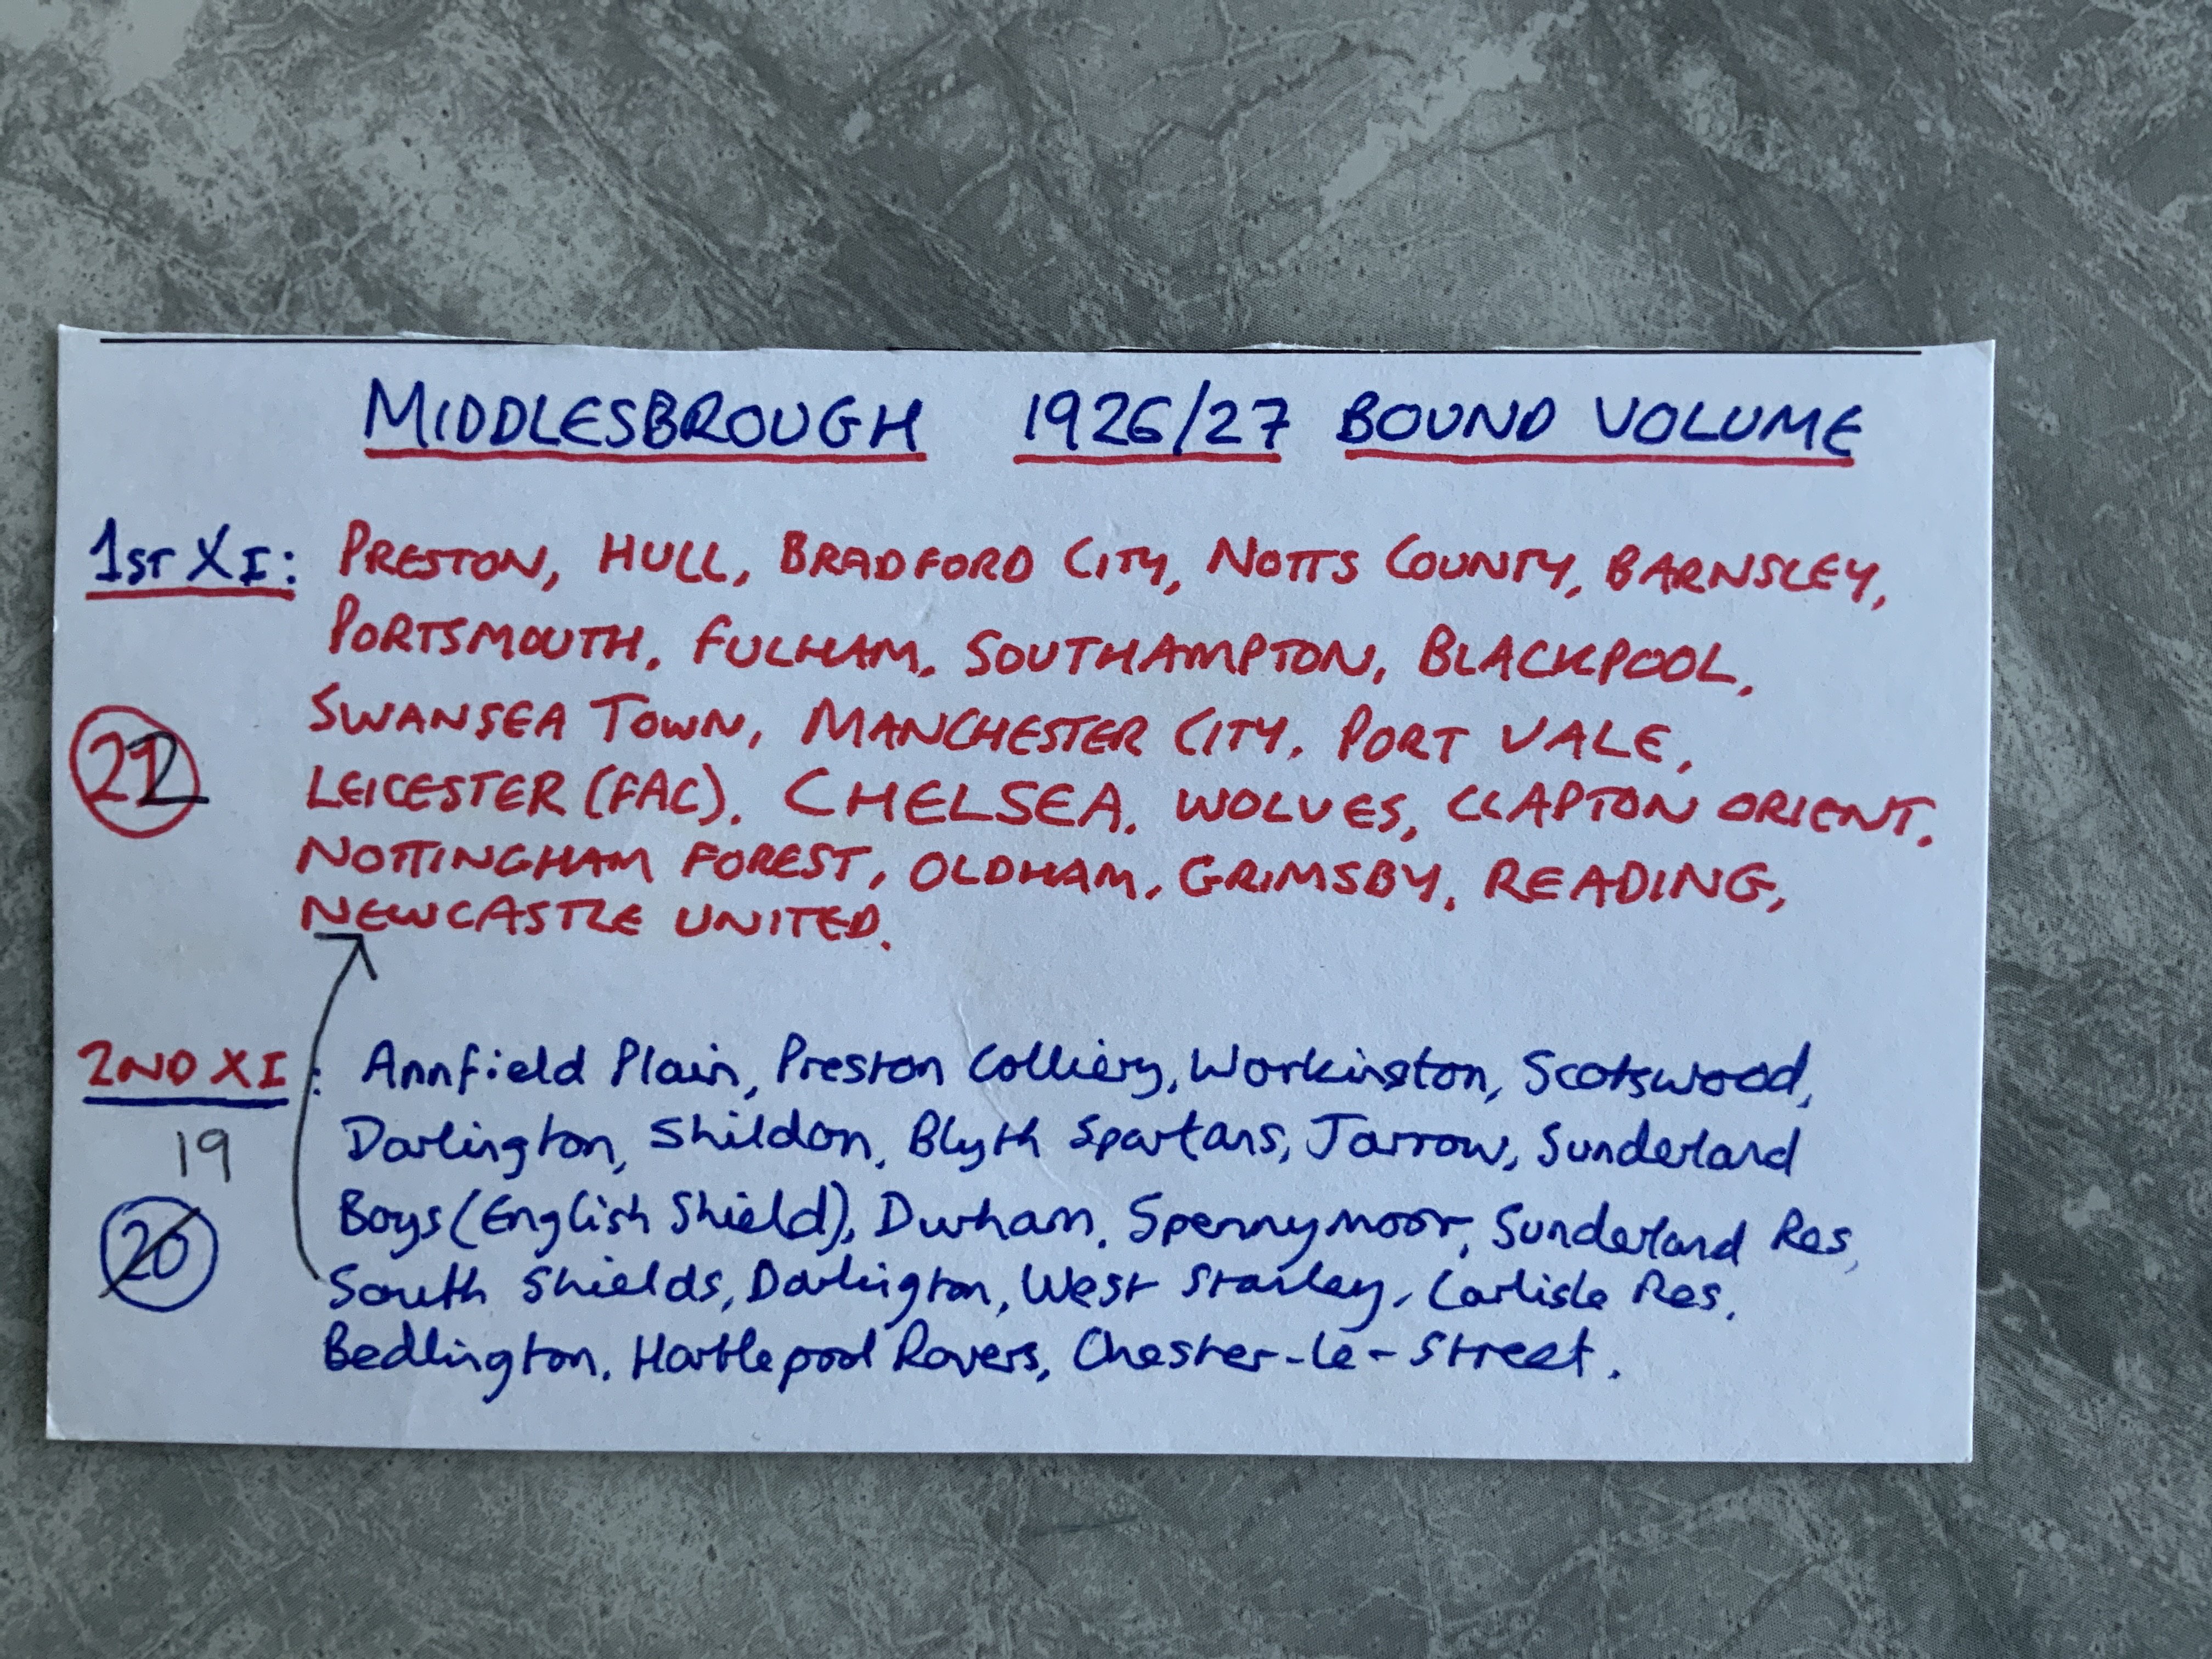 MIDDLESBROUGH 1926/27 BOUND VOLUME
1ST XI: PRESTON, HULL, BRADFORD CITY, NOTTS COUNTY, BARNSLEY,
PORTSMOUTH, FULHAM, SOUTHAMPTON, BLACKPOOL,
SWANSEA TOWN, MANCHESTER CITY, PORT VALE,
22
LEICESTER (FAC), CHELSEA, WOLVES, CLAPTON ORIENT,
NOTTINGHAM FOREST, OLDHAM, GRIMSBY, READING,
NEWCASTLE UNITED.
2ND XI: Annfield Plain, Preston Colliery, Workington, Scotswood,
Darlington, Shildon, Blyth Spartans, Jarrow, Sunderland
19
Boys (English Shield), Durham, Spennymoor, Sunderland Res,
20
South Shields, Darlington, West Stanley, Carlisle Res,
Bedlington, Hartlepool Rovers, Chester-le-Street.